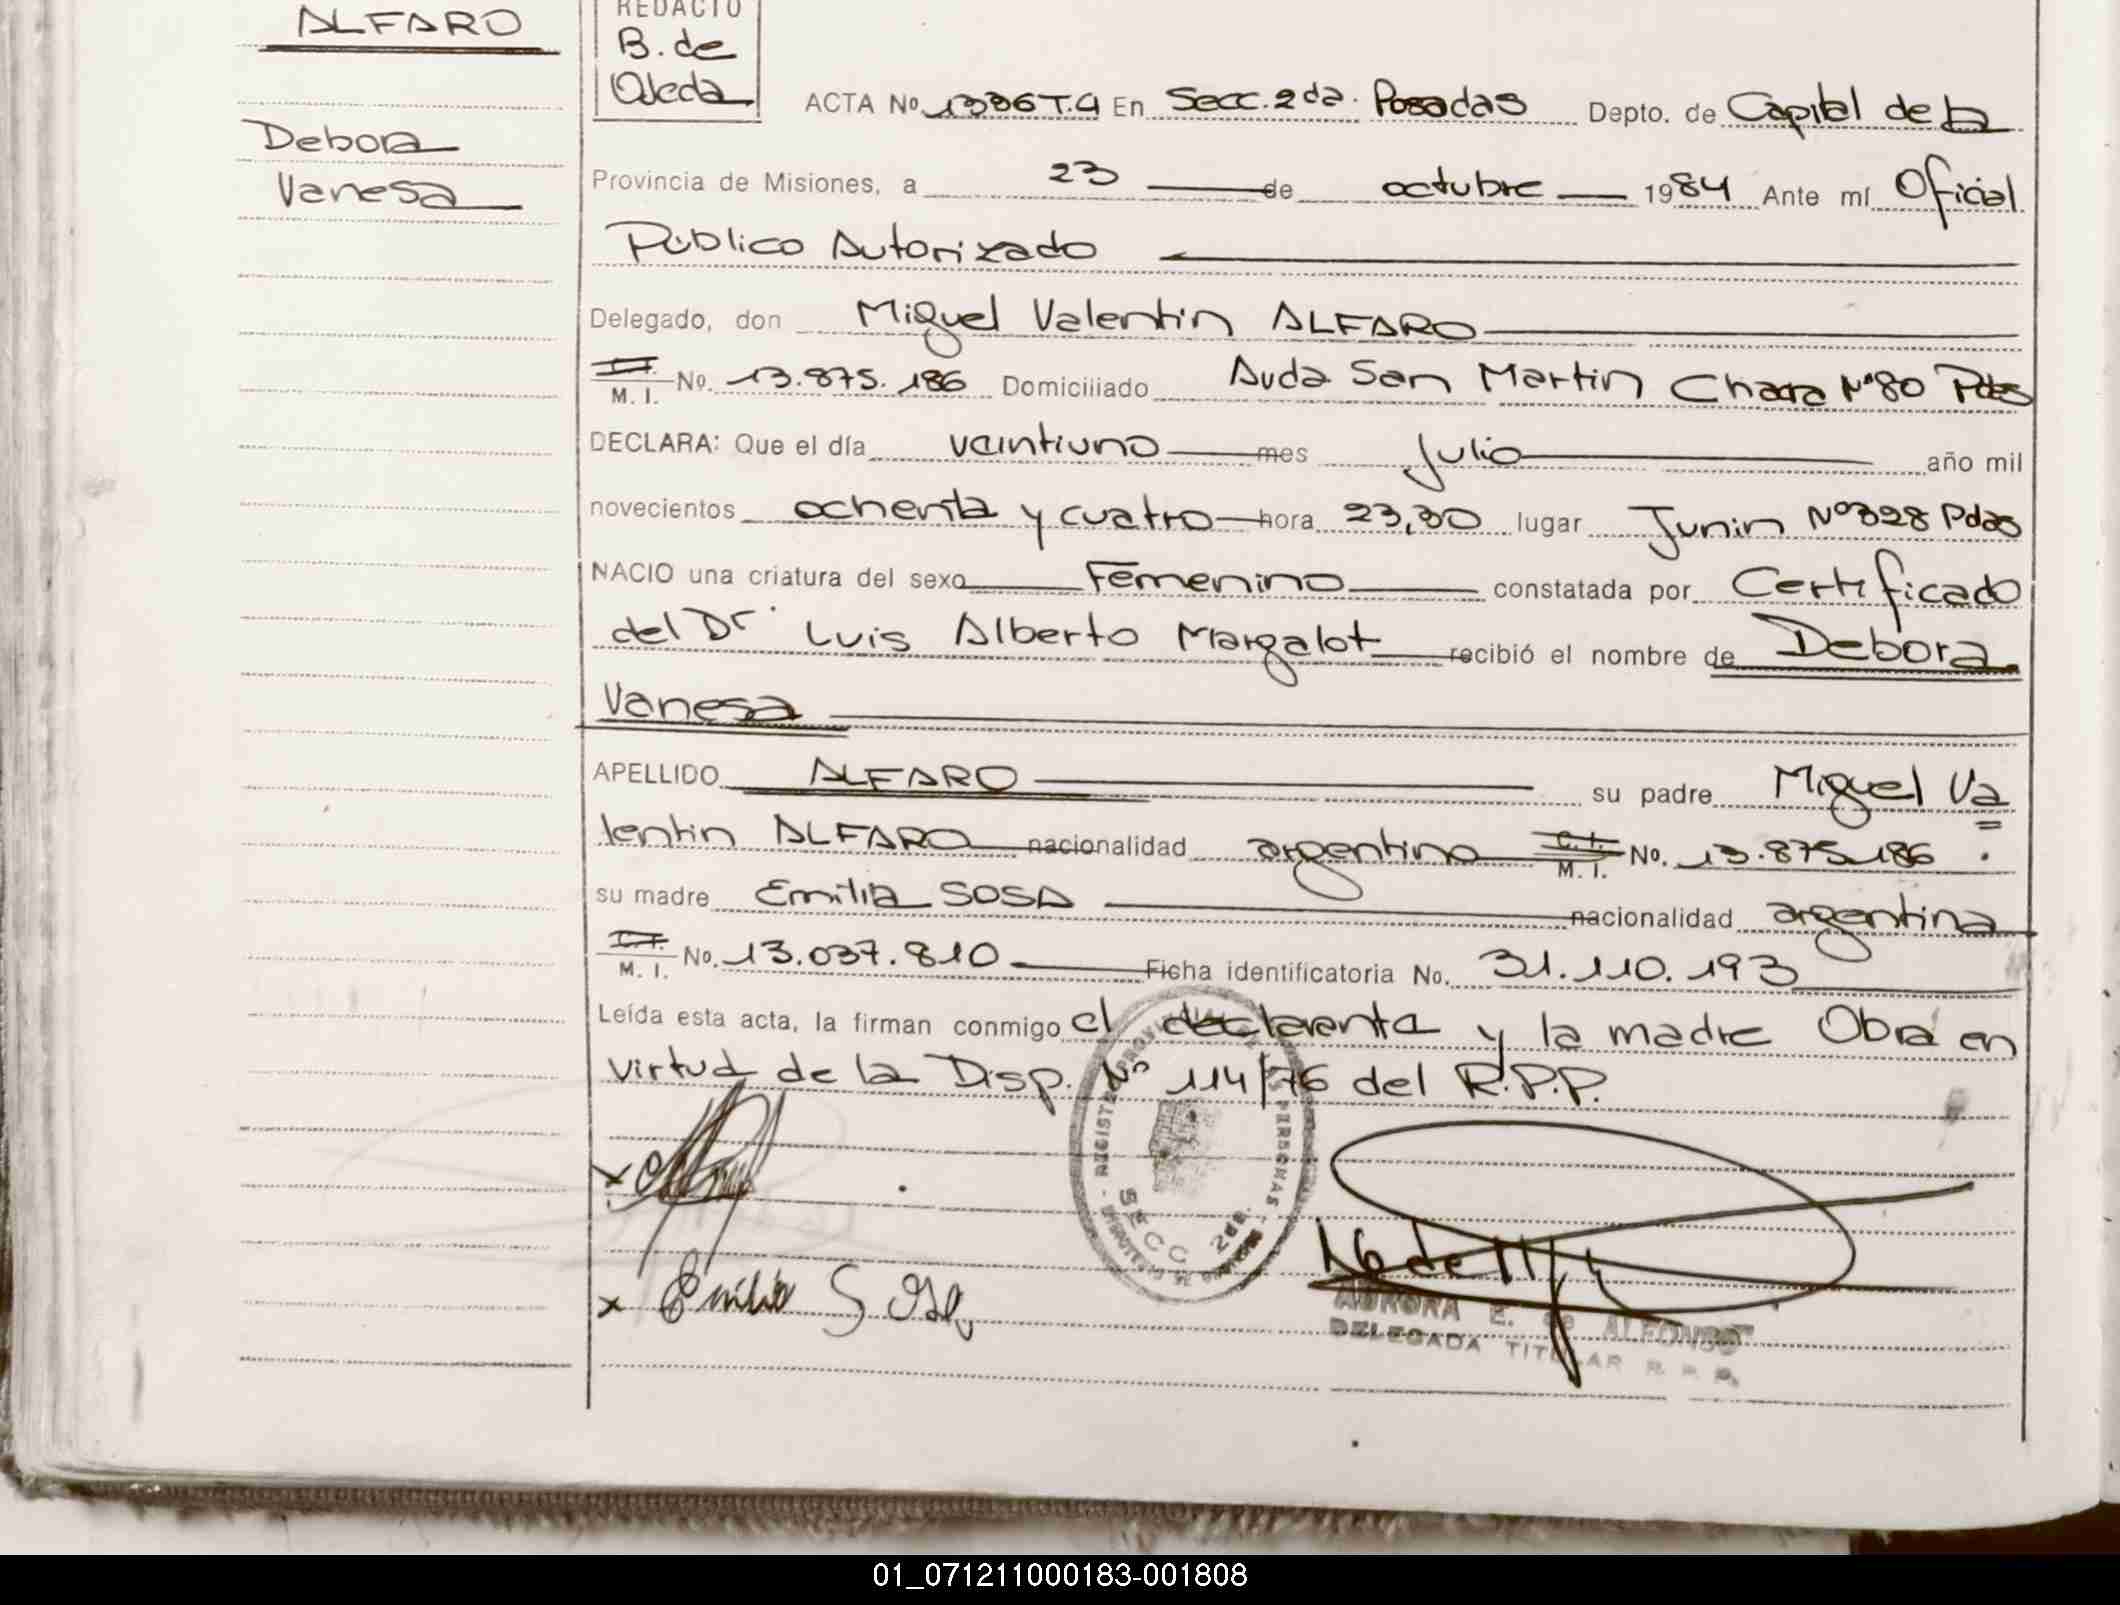 ALFARO
Debora
Vanesa
REDACTO
B. de
Ojeda
ACTA No. 1336 T.4 En Secc. 2da. Posadas Depto. de Capital de la
Provincia de Misiones, a 23 de octubre 1984 Ante mí Oficial
Público Autorizado
Delegado, don Miguel Valentin ALFARO
M. I. No. 13.875.186 Domiciliado Avda San Martin Chacra Nº 80 Pdas
DECLARA: Que el día veintiuno mes Julio año mil
novecientos ochenta y cuatro hora 23,30 lugar Junin Nº 328 Pdas
NACIO una criatura del sexo Femenino constatada por Certificado
del Dr Luis Alberto Margalot recibió el nombre de Debora
Vanesa
APELLIDO ALFARO su padre Miguel Va
lentin ALFARO nacionalidad argentino C. I. M. I. No. 13.875.186
su madre Emilia SOSA nacionalidad argentina
M. I. No. 13.037.810 Ficha identificatoria No. 31.110.193
Leída esta acta, la firman conmigo el declarante y la madre Obra en
virtud de la Disp. Nº 114/76 del R.P.P.
REGISTRO PROVINCIAL DE LAS PERSONAS
SECC 2da.
x
x Emilia Sosa
AURORA E. de ALFONSO
DELEGADA TITULAR R. P. P.
01_071211000183-001808